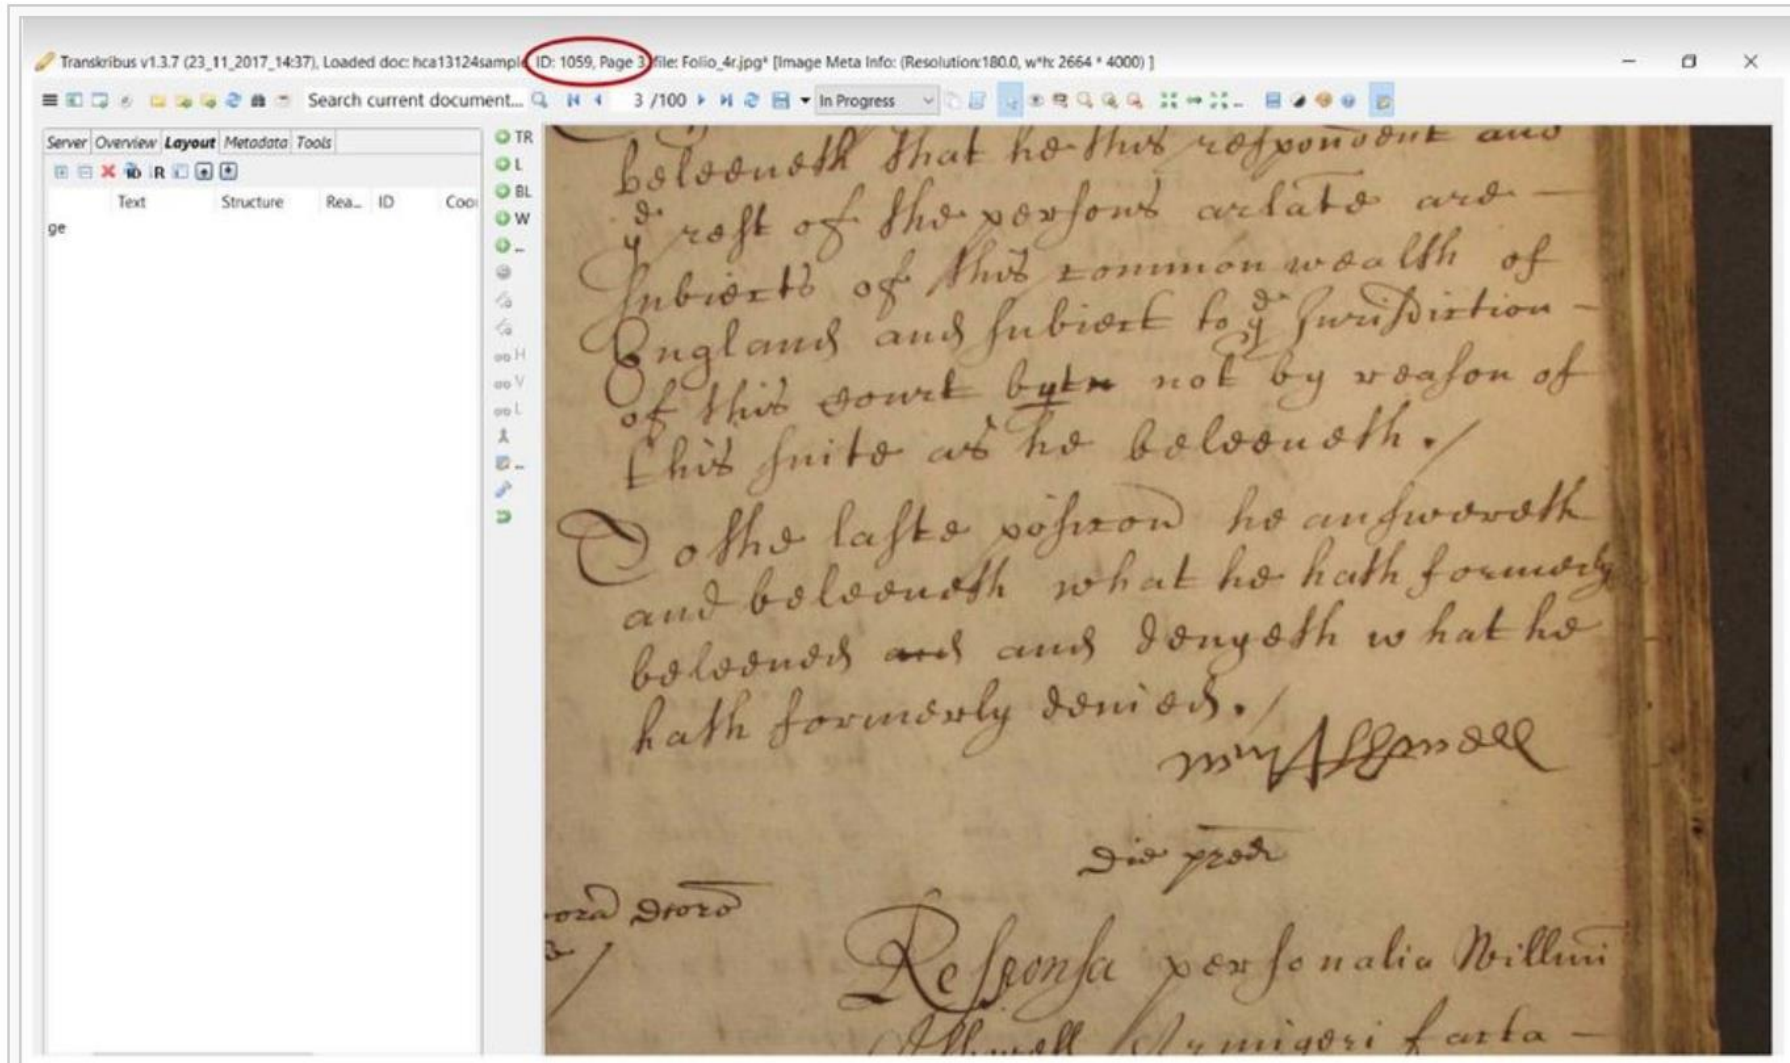 Transkribus v1.3.7 (23_11_2017_14:37), Loaded doc: hca13124sample, ID: 1059, Page 3, file: Folio_4r.jpg* [Image Meta Info: (Resolution:180.0, w*h: 2664 * 4000) ]
Search current document... 3 /100 In Progress
Server Overview Layout Metadata Tools
R
Text Structure Rea... ID Coor
ge
TR
L
BL
W
...
H
V
L
...
beleeueth that he this respondent and
ye rest of the persons arlate are
subiects of this common wealth of
England and subiect to ye Jurisdiction
of this court not by reason of
this suite as he beleeueth./
To the laste posicon he answereth
and beleeueth what he hath formerly
beleeued and and denyeth what he
hath formerly denied./
Die pred
Responsa personalia Willmi
Armigeri facta